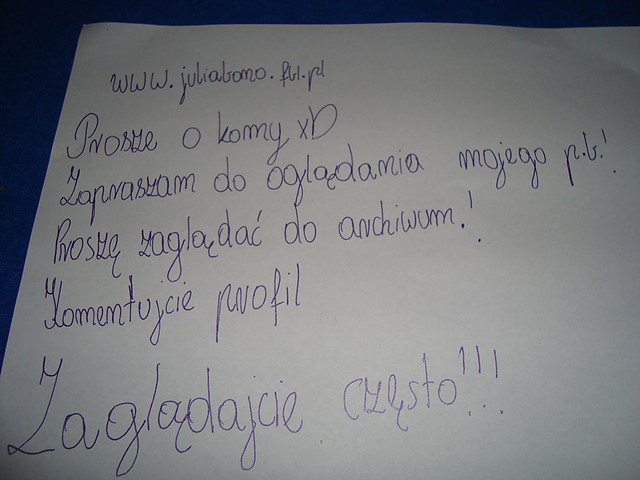 www.juliabono.fbl.pl
Proszę o komy xD
Zapraszam do oglądania mojego p.b.!
Proszę zaglądać do archiwum!
Komentujcie profil
Zaglądajcie często!!!